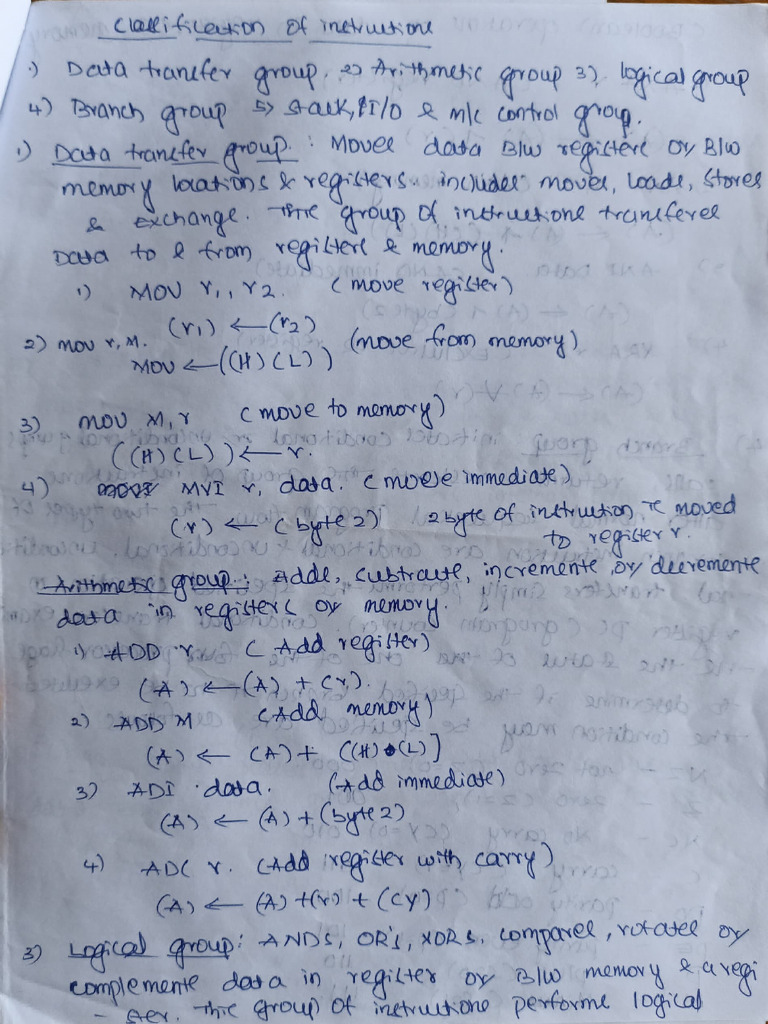 Classification of instructions
1) Data transfer group. 2) Arithmetic group 3) logical group
4) Branch group 5) Stack, I/O & m/c control group.
1) Data transfer group : Moves data B/w registers or B/w
memory locations & registers. includes moves, loads, stores
& Exchange. This group of instructions transferes
Data to & from registers & memory.
1) MOV r1, r2. (move register)
(r1) ← (r2)
2) mov r, M. (move from memory)
MOV ← ((H) (L))
3) mov M, r (move to memory)
((H) (L)) ← r.
4) MVI r, data. (move immediate)
(r) ← (byte 2) 2 byte of instruction is moved
to register r.
Arithmetic group : Adds, subtracts, increments or decrements
data in registers or memory.
1) ADD r (Add register)
(A) ← (A) + (r).
2) ADD M (Add memory)
(A) ← (A) + ((H) (L)]
3) ADI data. (Add immediate)
(A) ← (A) + (byte 2)
4) ADC r. (Add register with carry)
(A) ← (A) + (r) + (CY)
3) Logical group : ANDS, OR's, XORS, compares, rotates or
complements data in register or B/w memory & a regi
- ster. This group of instructions performs logical